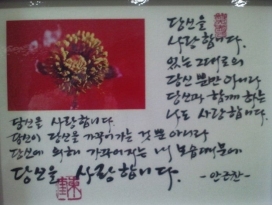 당신을
사랑합니다.
있는 그대로의
당신 뿐만 아니라
당신과 함께 하는
나도 사랑합니다.
당신을 사랑합니다.
당신이 당신을 가꾸어가는 것 뿐 아니라
당신에 의해 가꾸어지는 내 모습 때문에
당신을 사랑합니다.